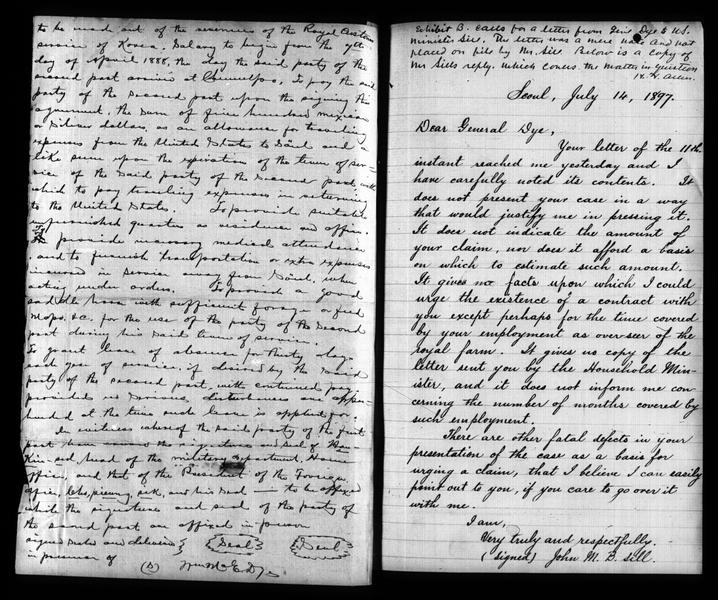 to be made out of the revenues of the Royal Customs
service of Korea. Salary to begin from the 7th
day of April 1888, the day the said party of the
second part arrived at Chemulpo. To pay the said
party of the second part upon the signing this
agreement, the sum of five hundred mexican
or Silver dollars, as an allowance for traveling
expenses from the United States to Söul and a
like sum upon the expiration of the term of ser-
vice of the said party of the second part, with
which to pay traveling expenses in returning
to the United States. To provide suitable
unfurnished quarters as residence and office.
To provide necessary medical attendance
and to furnish transportation or extra expenses
incurred in service away from Söul, when
acting under orders. To provide a good
saddle horse with sufficient forage or feed
&c. for the use of the party of the Second
part during his said term of service.
To grant leave of absence for thirty days
each year of service, if desired by the said
party of the second part, with continued pay,
provided no serious disturbances are appre-
hended at the time such leave is applied for.
In witness whereof the said party of the first
part the signatures and seal of
Kim and head of the military Department, Home
office, and that of the President of the Foreign
office, and his seal — to be affixed
while the signature and seal of the party of
the second part are affixed in person
signed sealed and delivered } {Seal} {Seal}
in presence of
(S) Wm McE. Dye
Exhibit B. calls for a letter from Gen. Dye to U.S.
Minister Sill. The letter was a mere note and not
placed on file by Mr. Sill. Below is a copy of
Mr Sills reply, which covers the matter in question
H. N. Allen.
Seoul, July 14, 1897.
Dear General Dye,
Your letter of the 11th
instant reached me yesterday and I
have carefully noted its contents. It
does not present your case in a way
that would justify me in pressing it.
It does not indicate the amount of
your claim, nor does it afford a basis
on which to estimate such amount.
It gives no facts upon which I could
urge the existence of a contract with
you except perhaps for the time covered
by your employment as over-seer of the
royal farm. It gives no copy of the
letter sent you by the Household Min-
ister, and it does not inform me con-
cerning the number of months covered by
such employment.
There are other fatal defects in your
presentation of the case as a basis for
urging a claim, that I believe I can easily
point out to you, if you care to go over it
with me.
I am,
Very truly and respectfully.
(signed) John M. B. Sill.